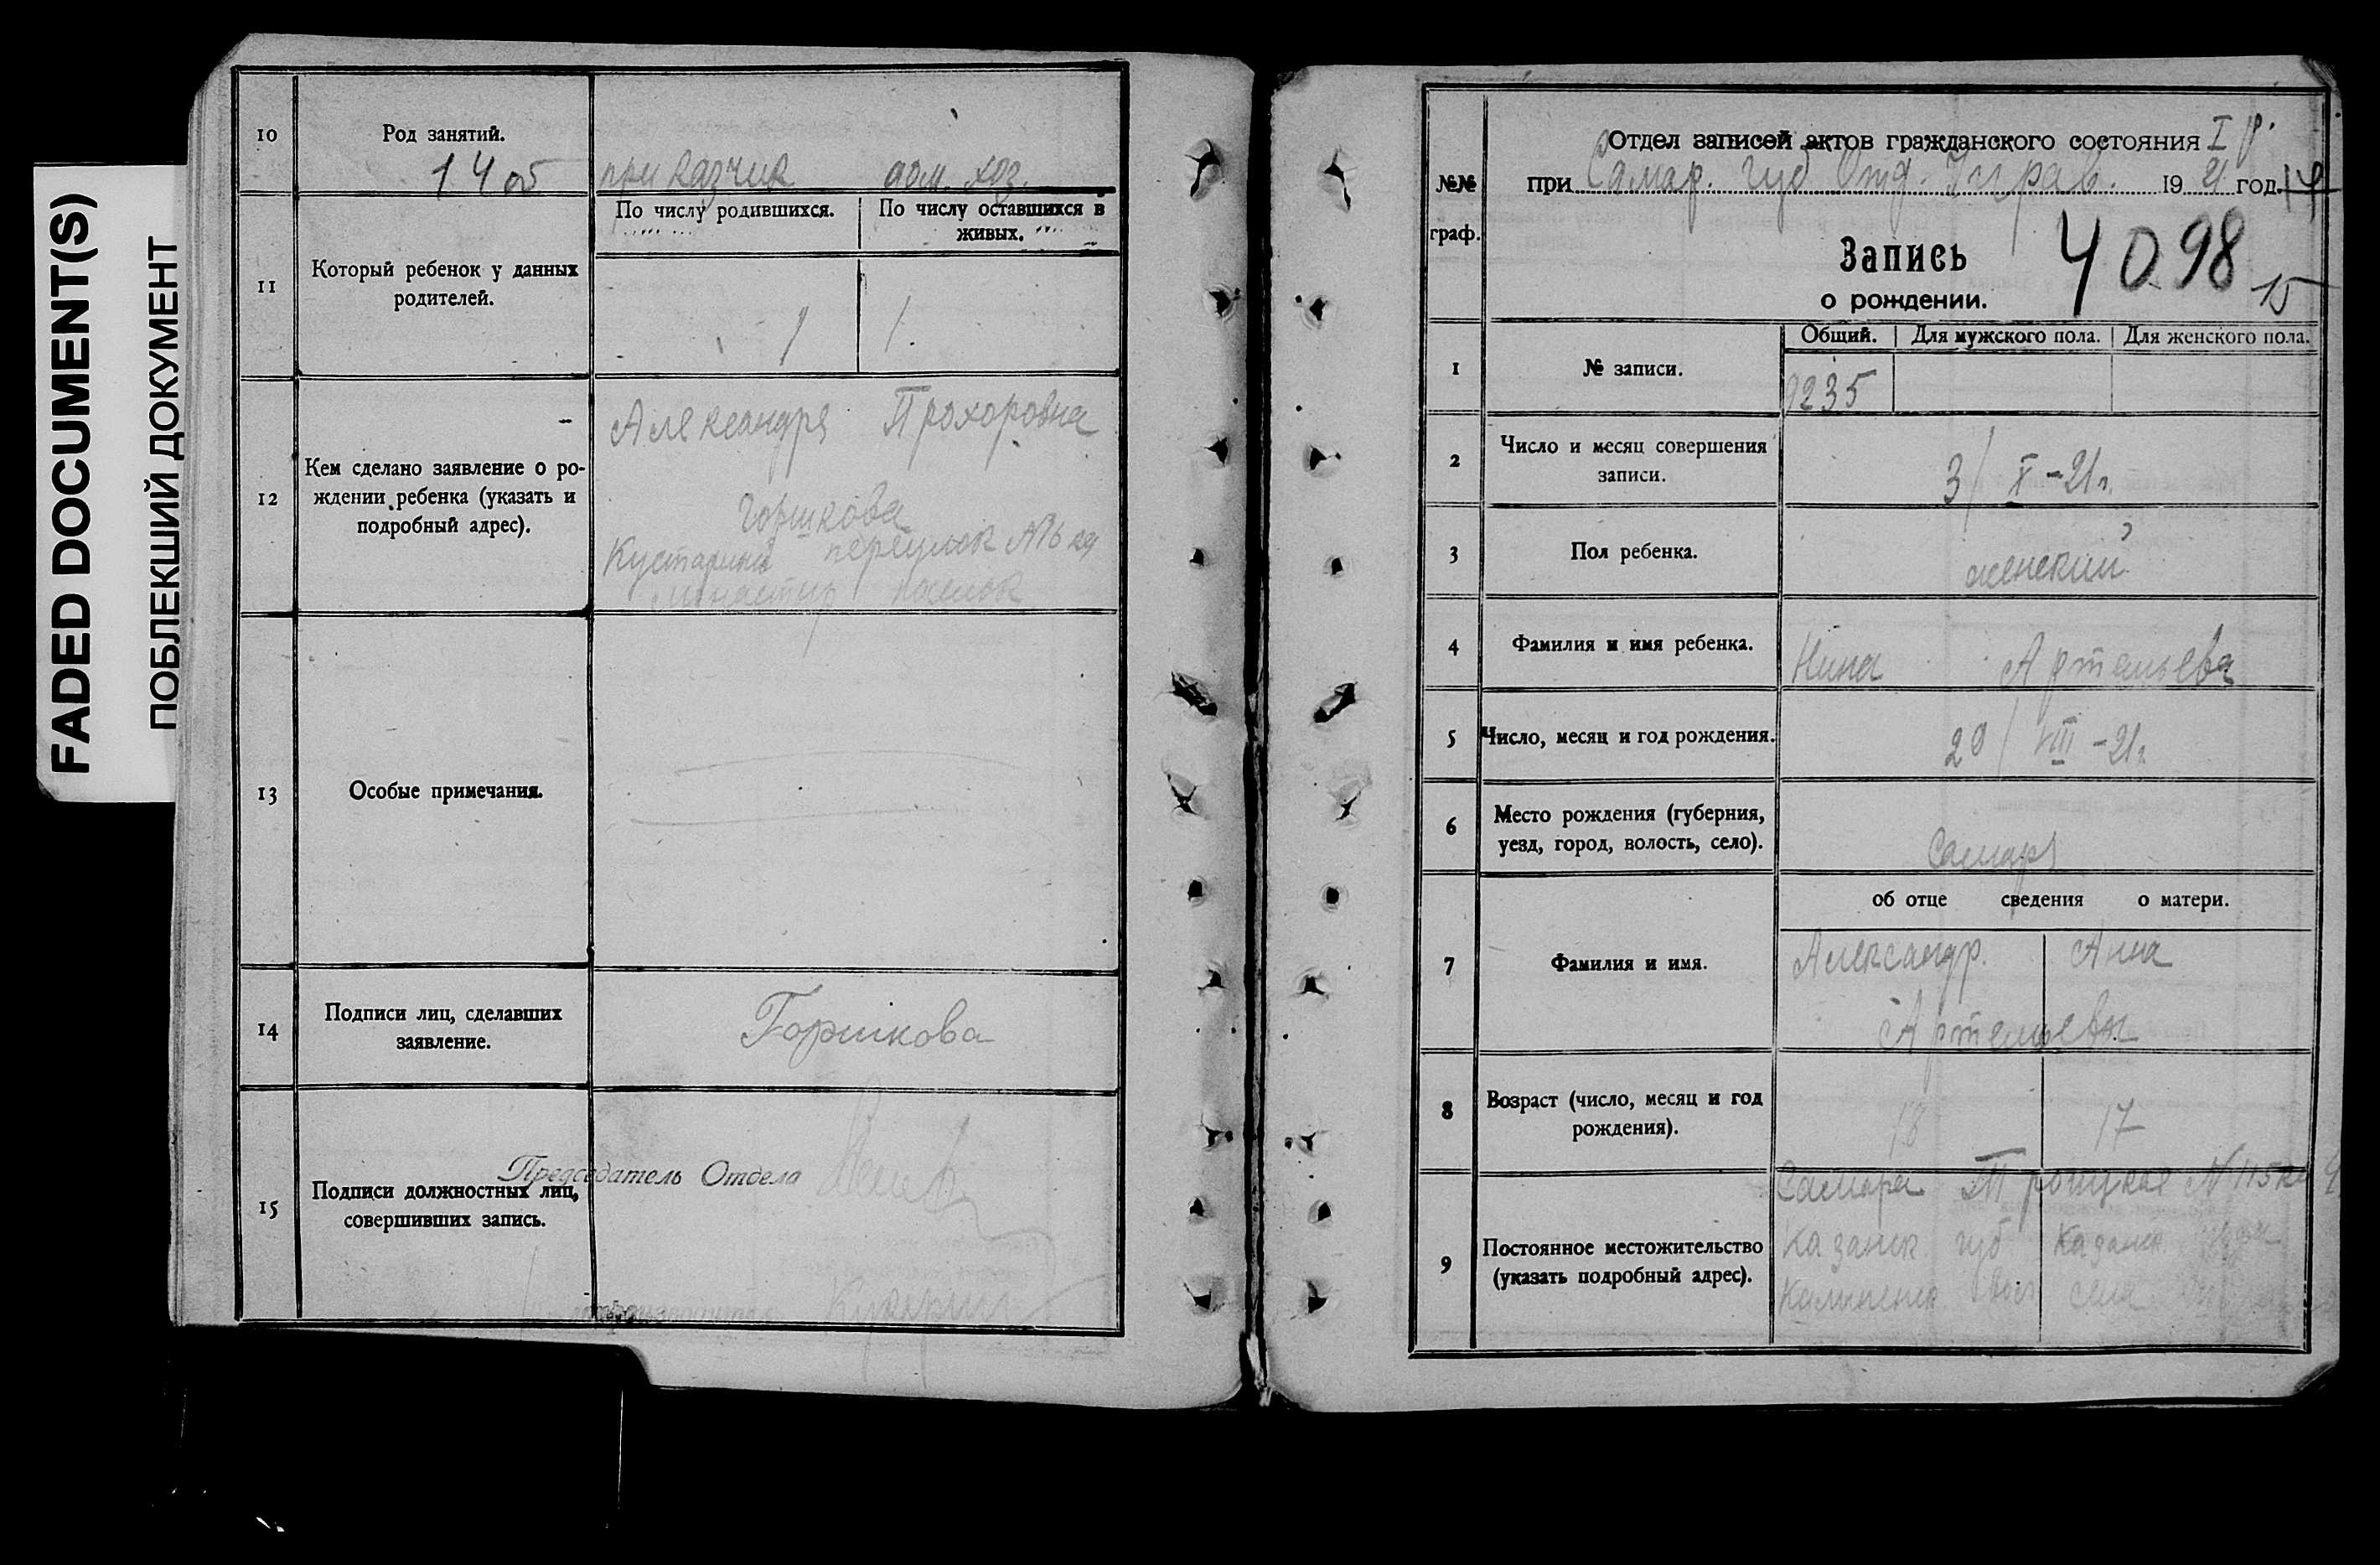 FADED DOCUMENT(S)
ПОБЛЕКШИЙ ДОКУМЕНТ
10
Род занятий.
14 об
приказчик дом. хоз.
11
Который ребенок у данных
родителей.
По числу родившихся.
По числу оставшихся в
живых.
1
1.
12
Кем сделано заявление о ро-
ждении ребенка (указать и
подробный адрес).
Александра Прохоровна
Горшкова
Кустарный переулок №
13
Особые примечания.
14
Подписи лиц, сделавших
заявление.
Горшкова
15
Подписи должностных лиц,
совершивших запись.
Председатель Отдела
№№
граф.
Отдел записей актов гражданского состояния I р.
при Самар. губ Отд. Управ. 1921 год
Запись
о рождении.
4098
15
1
№ записи.
Общий.
Для мужского пола.
Для женского пола.
235
2
Число и месяц совершения
записи.
3/X-21г.
3
Пол ребенка.
женский
4
Фамилия и имя ребенка.
Нина Артемьева
5
Число, месяц и год рождения.
20/VIII-21г.
6
Место рождения (губерния,
уезд, город, волость, село).
Самара
7
Фамилия и имя.
об отце сведения о матери.
Александр. Анна
Артемьевы
8
Возраст (число, месяц и год
рождения).
18
17
9
Постоянное местожительство
(указать подробный адрес).
Самара Троицкая N 115 кв
Казанск губ
Казанск
вол
села